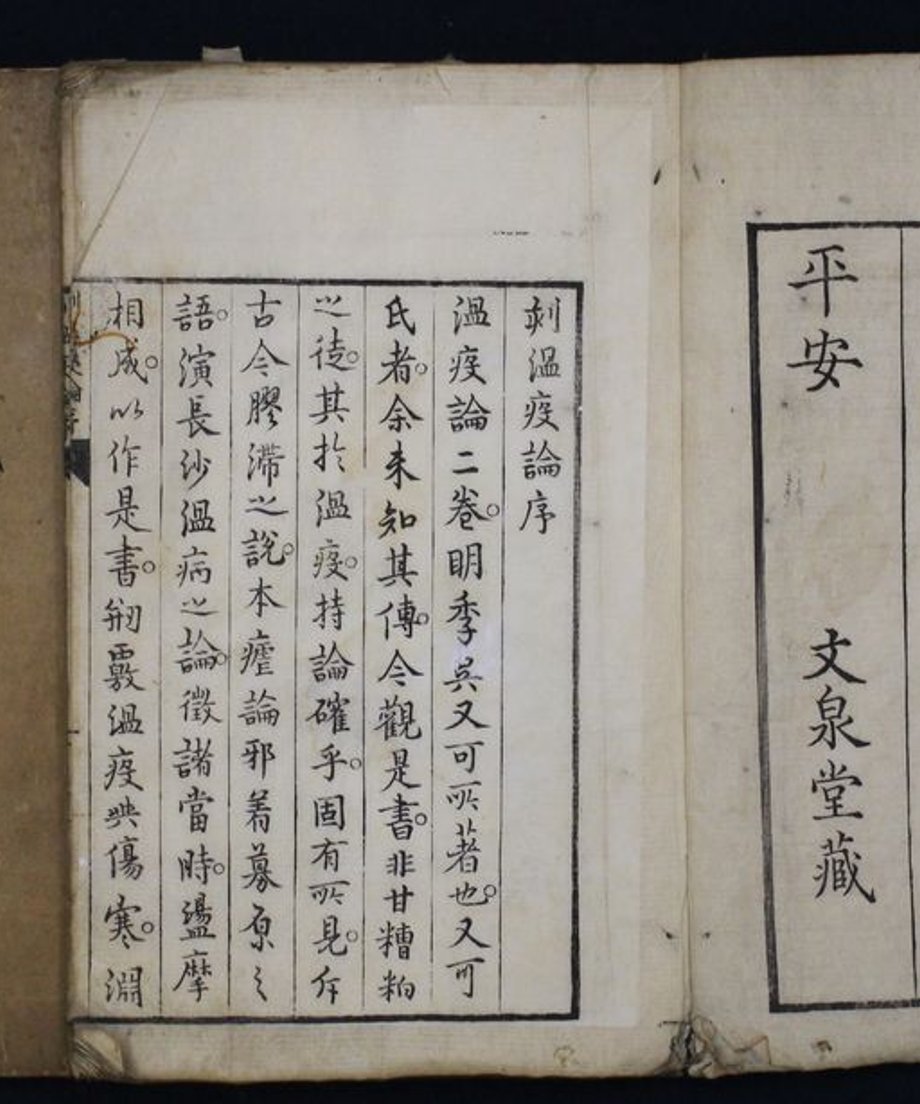 平安 文泉堂藏
刻溫疫論序
溫疫論二卷。明季吳又可所著也。又可
氏者。余未知其傳。今觀是書。非甘糟粕
之徒。其於溫疫。持論確乎。固有所見。斥
古今膠滯之說。本瘧論邪着募原之
語。演長沙溫病之論。徵諸當時。盪摩
相成。以作是書。剏覈溫疫與傷寒。淵